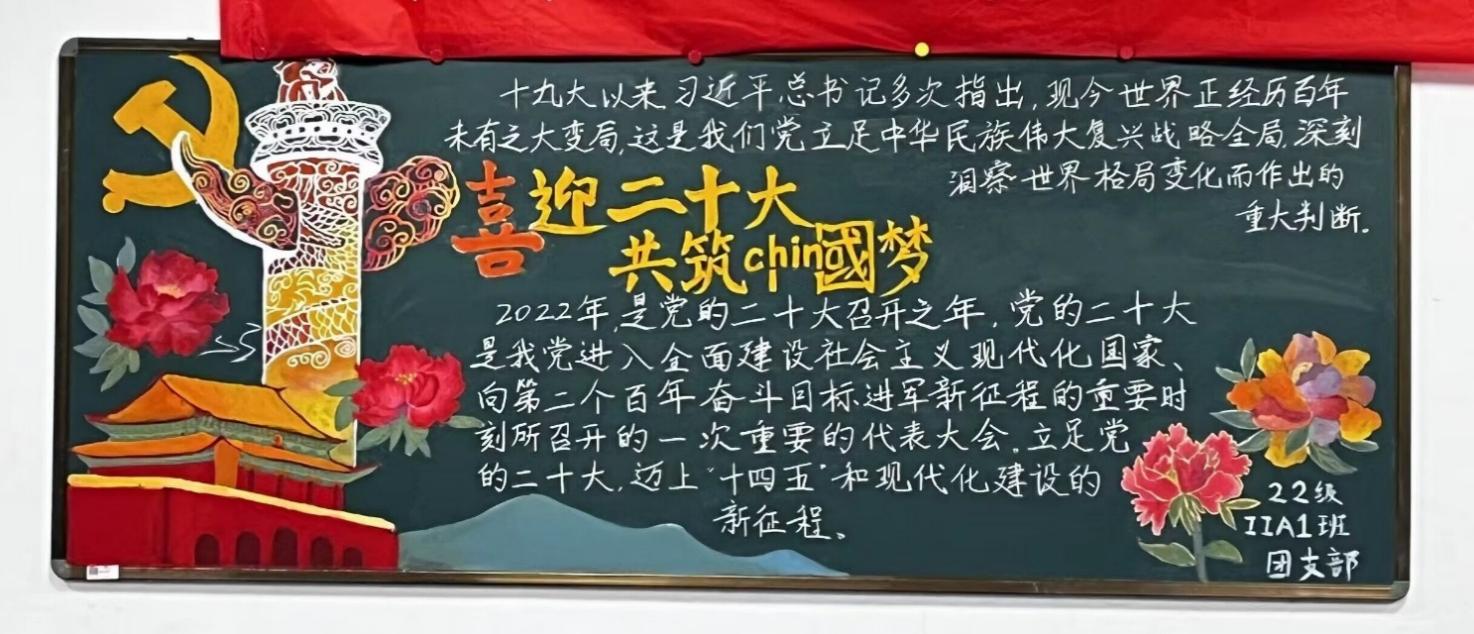 十九大以来习近平总书记多次指出,现今世界正经历百年
未有之大变局,这是我们党立足中华民族伟大复兴战略全局,深刻
洞察世界格局变化而作出的
重大判断.
喜迎二十大
共筑china國梦
2022年,是党的二十大召开之年,党的二十大
是我党进入全面建设社会主义现代化国家、
向第二个百年奋斗目标进军新征程的重要时
刻所召开的一次重要的代表大会。立足党
的二十大,迈上“十四五”和现代化建设的
新征程。
22级
IIA1班
团支部